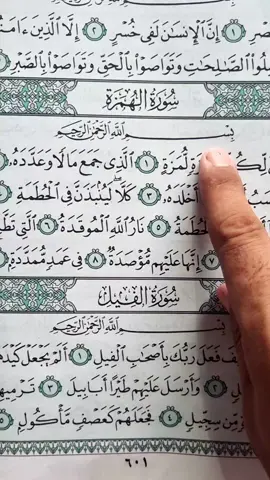 إِنَّ الْإِنسَٰنَ لَفِى خُسْرٍ ٢ إِلَّا الَّذِينَ ءَامَنُ
الصَّٰلِحَٰتِ وَتَوَاصَوْا۟ بِالْحَقِّ وَتَوَاصَوْا۟ بِالصَّبْرِ
سُورَةُ الْهُمَزَةِ
بِسْمِ اللَّهِ الرَّحْمَٰنِ الرَّحِيمِ
لِّكُ لُّمَزَةٍ ١ الَّذِى جَمَعَ مَالًا وَعَدَّدَهُۥ
أَخْلَدَهُۥ ٣ كَلَّا لَيُنۢبَذَنَّ فِى الْحُطَمَةِ
الْحُطَمَةُ ٥ نَارُ اللَّهِ الْمُوقَدَةُ ٦ الَّتِى تَطَّ
٧ إِنَّهَا عَلَيْهِم مُّؤْصَدَةٌ ٨ فِى عَمَدٍ مُّمَدَّدَةٍۭ
سُورَةُ الْفِيلِ
بِسْمِ اللَّهِ الرَّحْمَٰنِ الرَّحِيمِ
فَعَلَ رَبُّكَ بِأَصْحَٰبِ الْفِيلِ ١ أَلَمْ يَجْعَلْ كَيْدَهُ
٢ وَأَرْسَلَ عَلَيْهِمْ طَيْرًا أَبَابِيلَ ٣ تَرْمِيهِ
مِّن سِجِّيلٍ ٤ فَجَعَلَهُمْ كَعَصْفٍ مَّأْكُولٍۭ
٦٠١